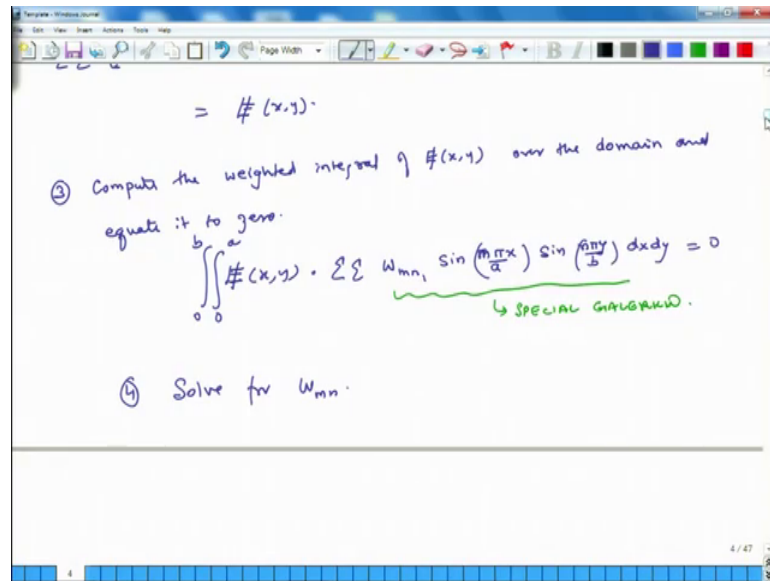 Template - Windows Journal
File Edit View Insert Actions Tools Help
Page Width
= E (x,y).
③ Compute the weighted integral of E(x,y) over the domain and
equate it to zero.
∫₀ᵇ∫₀ᵃ E(x,y) · ΣΣ Wmn, sin (mπx/a) sin (nπy/b) dxdy = 0
↳ SPECIAL GALERKIN.
④ Solve for Wmn.
4 / 47
4